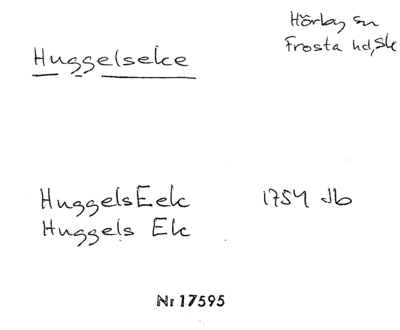 Hörby sn
Frosta hd, Sk
Huggelseke
HuggelsEek 1754 Jb
Huggels Ek
Nr 17595